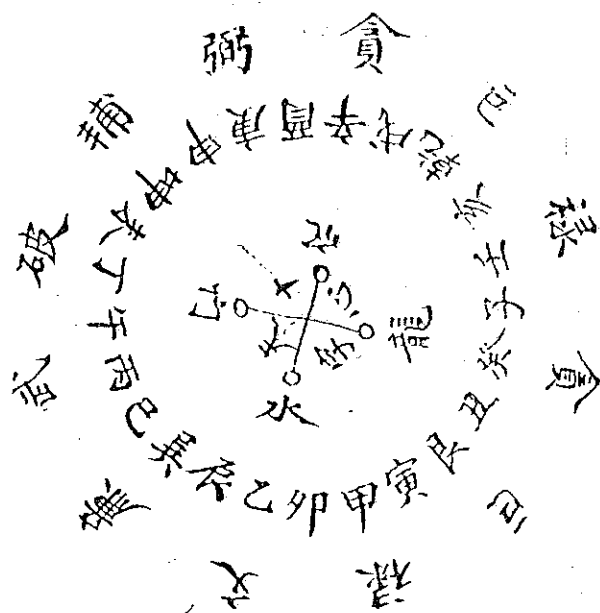 貪巨祿貪巨祿文廉武破輔弼
壬子癸丑艮寅甲卯乙辰巽巳丙午丁未坤申庚酉辛戌乾亥
龍
水